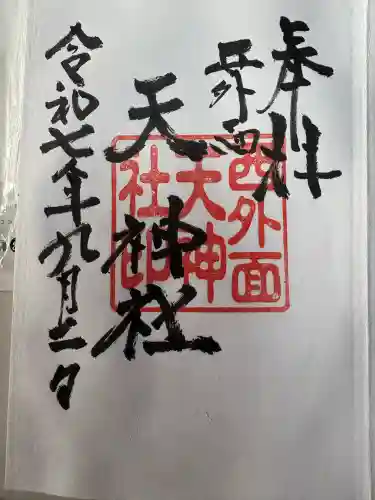 奉拝
西外面
天神社
令和七年九月二日
西外面
天神
社印